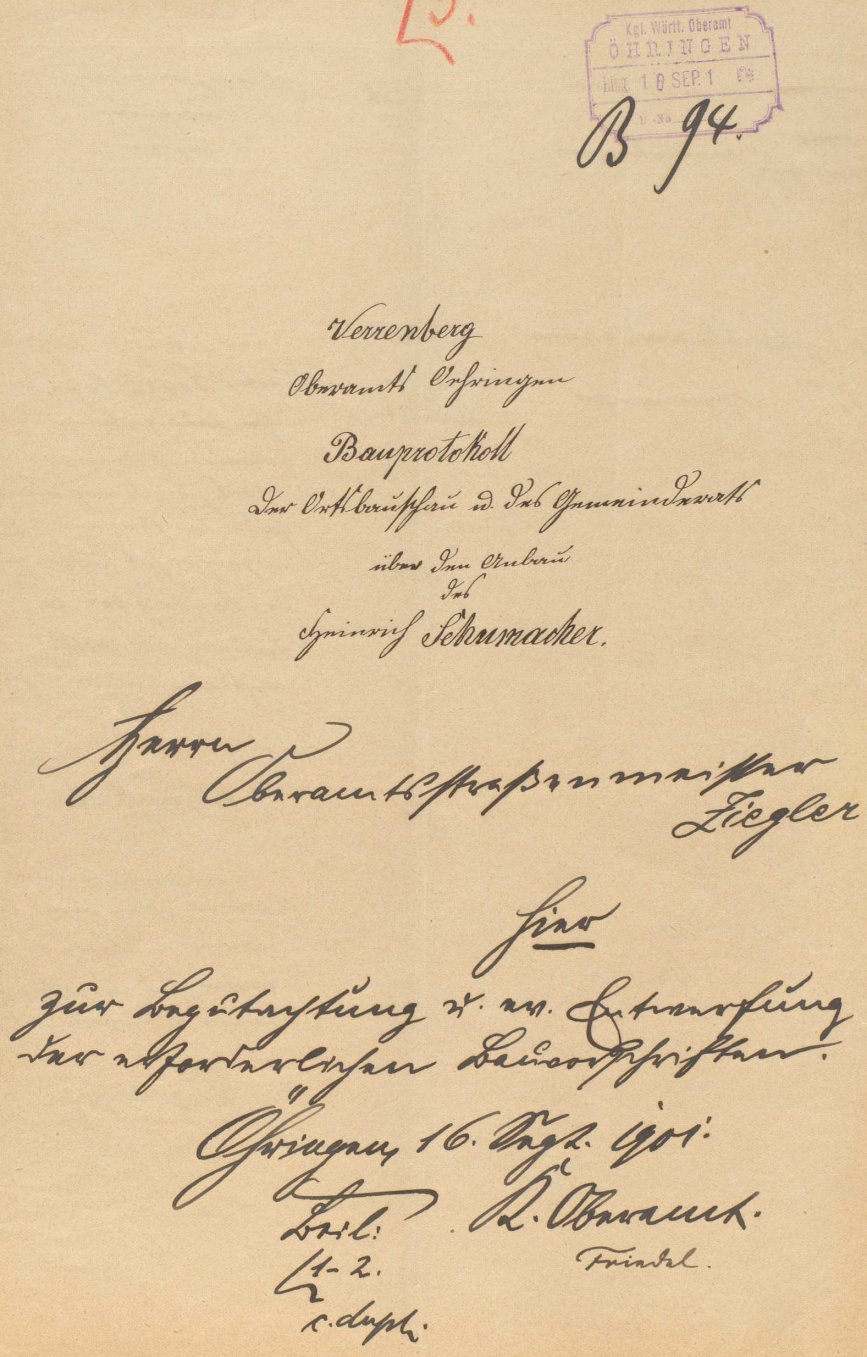 [3.
Kgl. Württ. Oberamt
ÖHRINGEN
Eing. 16 SEP. 1
B-No.
B 94.
Verrenberg
Oberamts Oehringen
Bauprotokoll
der Ortsbauschau u. des Gemeinderats
über den Anbau
des
Heinrich Schumacher.
Herrn
Oberamtsstraßenmeister
Ziegler
hier
zur Begutachtung u. ev. Entwerfung
der erforderlichen Bauvorschriften.
Öhringen, 16. Sept. 1901.
Beil: K. Oberamt.
[1-2. Friedel.
c. dupl.